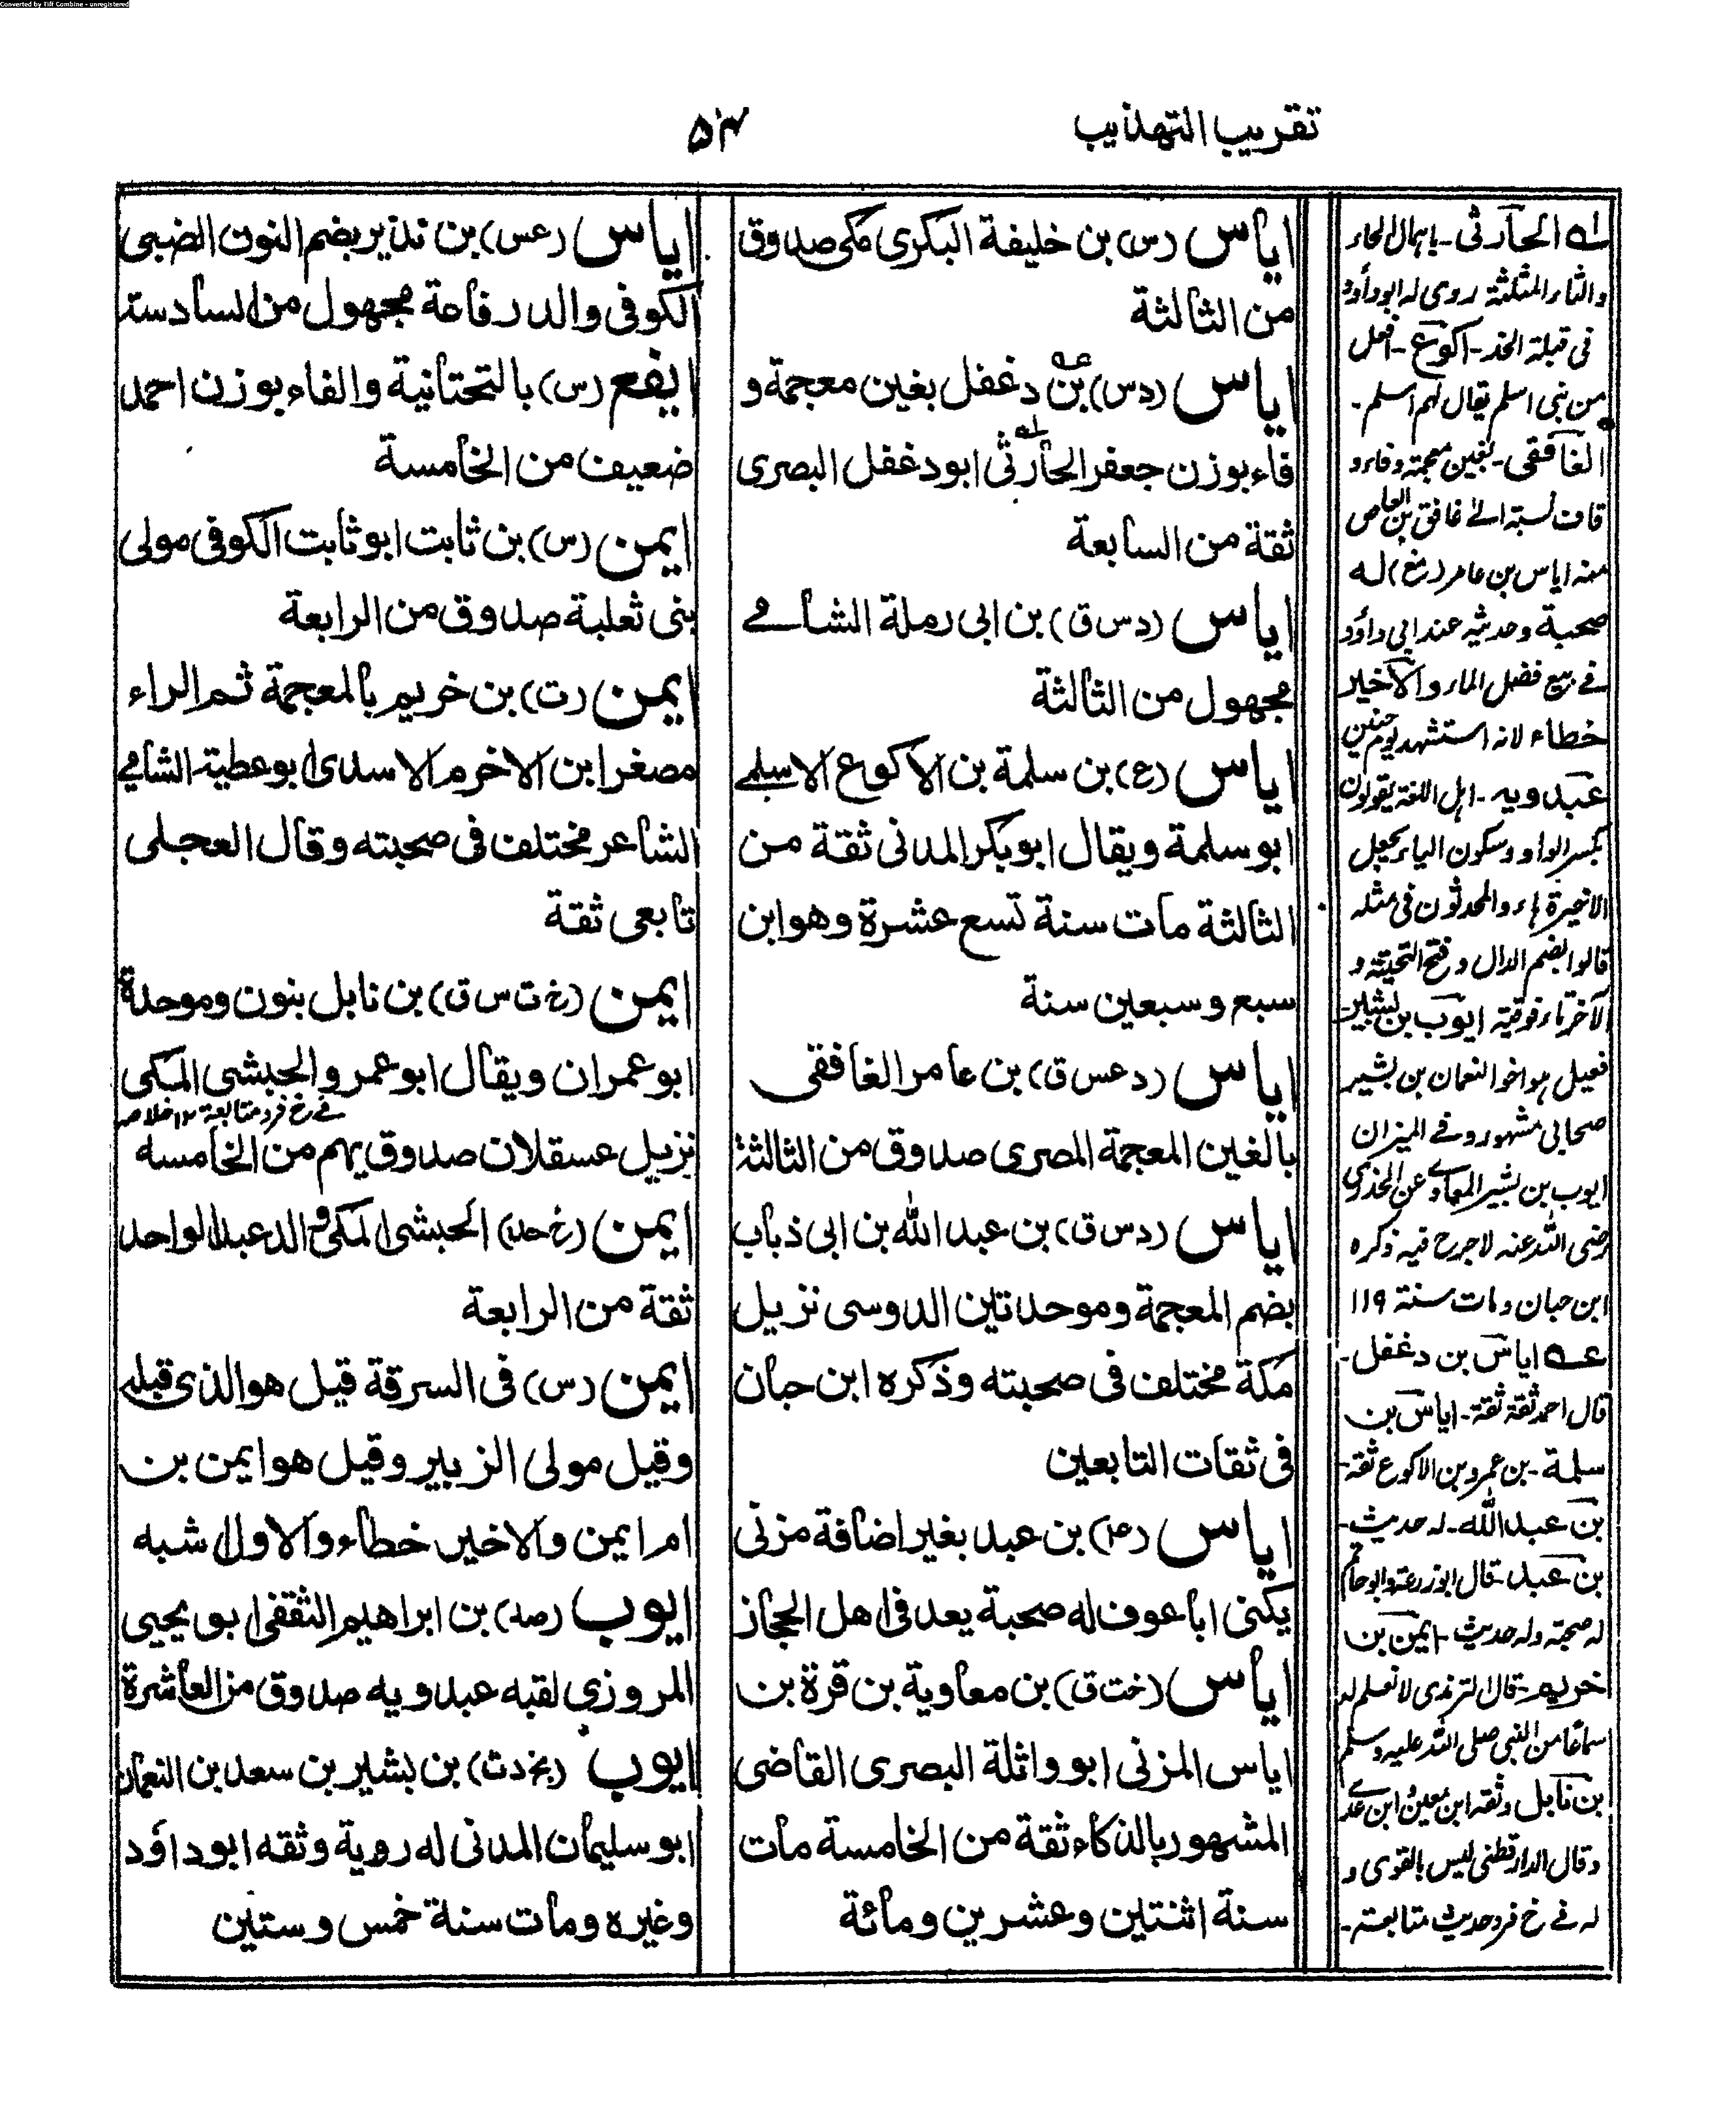 Converted by Tiff Combine - unregistered
تقريب التهذيب
۵۴
اياس (س) بن خليفة البكرى مكى صدوق
من الثالثة
اياس (دس) بن دغفل بغين معجمة و
فاء بوزن جعفر الحارثى ابو دغفل البصرى
ثقة من السابعة
اياس (دس ق) بن ابى رملة الشامے
مجهول من الثالثة
اياس (ع) بن سلمة بن الاكوع الاسلمے
ابو سلمة ويقال ابو بكر المدنى ثقة من
الثالثة مات سنة تسع عشرة وهو ابن
سبع وسبعين سنة
اياس (دعس ق) بن عامر الغافقى
بالغين المعجمة المصرى صدوق من الثالثة
اياس (دس ق) بن عبد الله بن ابى ذباب
بضم المعجمة وموحدتين الدوسى نزيل
مكة مختلف فى صحبته وذكره ابن حبان
فى ثقات التابعين
اياس (عم) بن عبد بغير اضافة مزنى
يكنى ابا عوف له صحبة يعد فى اهل الحجاز
اياس (خت ق) بن معاوية بن قرة بن
اياس المزنى ابو واثلة البصرى القاضى
المشهور بالذكاء ثقة من الخامسة مات
سنة اثنتين وعشرين ومائة
اياس (عس) بن نذير بضم النون الضبى
الكوفى والد رفاعة مجهول من السادسة
ايفع (س) بالتحتانية والفاء بوزن احمد
ضعيف من الخامسة
ايمن (س) بن ثابت ابو ثابت الكوفى مولى
بنى ثعلبة صدوق من الرابعة
ايمن (ت) بن خريم بالمعجمة ثم الراء
مصغر ابن الاخرم الاسدى ابو عطية الشامے
الشاعر مختلف فى صحبته وقال العجلى
تابعى ثقة
ايمن (خ ت س ق) بن نابل بنون وموحدة
ابو عمران ويقال ابو عمرو الحبشى المكى
فے خ فرد متابعة ١٢ خلاصه
نزيل عسقلان صدوق يهم من الخامسه
ايمن (خ صد) الحبشى المكى والد عبد الواحد
ثقة من الرابعة
ايمن (س) فى السرقة قيل هو الذى قبله
وقيل مولى الزبير وقيل هو ايمن بن
ام ايمن والاخير خطاء والاول شبه
ايوب (صد) بن ابراهيم الثقفى ابو يحيى
المروزى لقبه عبدويه صدوق من العاشرة
ايوب (بخ دت) بن بشير بن سعد بن النعمان
ابو سليمان المدنى له روية وثقه ابو داؤد
وغيره ومات سنة خمس وستين
له الحارثى - باهمال الحاء
والثاء المثلثة روى له ابو داؤد
فى قبلة الخد - اكوع - افعل
من بنى اسلم يقال لهم اسلم -
الغافقى - بغين معجمة وفاء و
قاف نسبة الےٰ غافق بن العاص
منه اياس بن عامر (مخ) له
صحبة وحديثه عند ابى داؤد
فے بيع فضل الماء والاخير
خطاء لانه استشهد يوم حنين
عبدويه - اهل اللغة يقولون
بكسر الواو وسكون الياء بجعل
الاخيرة هاء والمحدثون فى مثله
قالوا بضم الدال وفتح التحتية و
الآخر تاء فوقية ايوب بن بشير
فعيل هو اخو النعمان بن بشير
صحابى مشهور وفے الميزان
ايوب بن بشير المعاوے عن الخدرى
رضى الله عنه لا جرح فيه ذكره
ابن حبان ومات سنة ١١٩
عه اياس بن دغفل -
قال احمد ثقة ثقة - اياس بن
سلمة - بن عمرو بن الاكوع ثقة -
بن عبد الله - له حديث -
بن عبد - قال ابو زرعة وابو حاتم
له صحبة وله حديث - ايمن بن
خريم - قال الترمذى لا نعلم له
سماعا من النبى صلى الله عليه وسلم
بن نابل وثقه ابن معين ابن عدے
وقال الدارقطنى ليس بالقوى و
له فے خ فرد حديث متابعة -